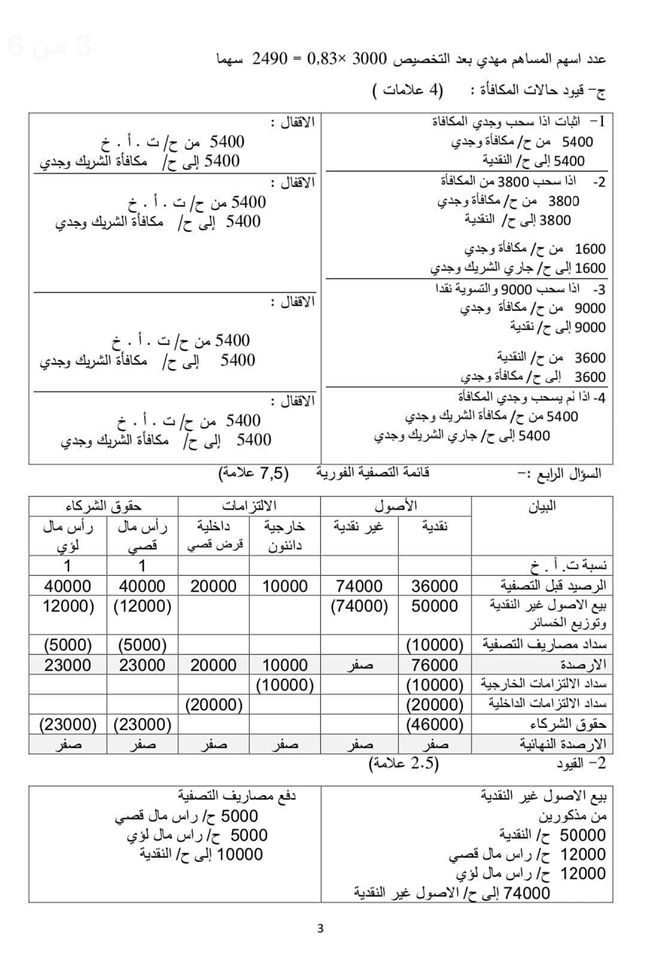 3 من 6
عدد اسهم المساهم مهدي بعد التخصيص 3000 ×0,83 = 2490 سهما
ج- قيود حالات المكافأة : (4 علامات )
1- اثبات اذا سحب وجدي المكافاة
5400 من ح/ مكافأة وجدي
5400 إلى ح/ النقدية
الاقفال :
5400 من ح/ ت . أ . خ
5400 إلى ح/ مكافأة الشريك وجدي
2- اذا سحب 3800 من المكافأة
3800 من ح/ مكافأة وجدي
3800 إلى ح/ النقدية
1600 من ح/ مكافأة وجدي
1600 إلى ح/ جاري الشريك وجدي
الاقفال :
5400 من ح/ ت . أ . خ
5400 إلى ح/ مكافأة الشريك وجدي
3- اذا سحب 9000 والتسوية نقدا
9000 من ح/ مكافأة وجدي
9000 إلى ح/ نقدية
3600 من ح/ النقدية
3600 إلى ح/ مكافأة وجدي
الاقفال :
5400 من ح/ ت . أ . خ
5400 إلى ح/ مكافأة الشريك وجدي
4- اذا لم يسحب وجدي المكافأة
5400 من ح/ مكافأة الشريك وجدي
5400 إلى ح/ جاري الشريك وجدي
الاقفال :
5400 من ح/ ت . أ . خ
5400 إلى ح/ مكافأة الشريك وجدي
السؤال الرابع :- قائمة التصفية الفورية (7,5 علامة)
البيان الأصول الالتزامات حقوق الشركاء
نقدية غير نقدية خارجية دائنون داخلية قرض قصي رأس مال قصي رأس مال لؤي
نسبة ت. أ . خ 1 1
الرصيد قبل التصفية 36000 74000 10000 20000 40000 40000
بيع الاصول غير النقدية وتوزيع الخسائر 50000 (74000) (12000) (12000
سداد مصاريف التصفية (10000) (5000) (5000)
الارصدة 76000 صفر 10000 20000 23000 23000
سداد الالتزامات الخارجية (10000) (10000)
سداد الالتزامات الداخلية (20000) (20000)
حقوق الشركاء (46000) (23000) (23000)
الارصدة النهائية صفر صفر صفر صفر صفر صفر
2- القيود (2.5 علامة)
بيع الاصول غير النقدية
من مذكورين
50000 ح/ النقدية
12000 ح/ راس مال قصي
12000 ح/ راس مال لؤي
74000 إلى ح/ الاصول غير النقدية
دفع مصاريف التصفية
5000 ح/ راس مال قصي
5000 ح/ راس مال لؤي
10000 إلى ح/ النقدية
3